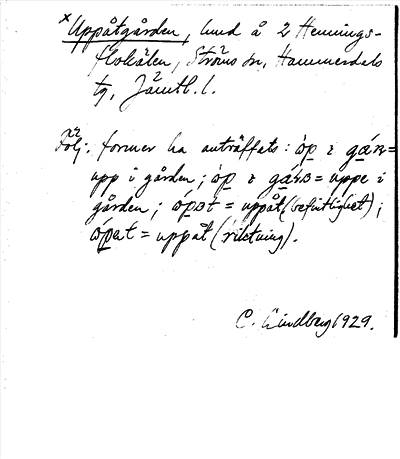 x Uppåtgården, hmd å 2 Hennings-
flokälen, Ströms sn, Hammerdals
tg, Jämtl. l.
Följ. former ha anträffats: óp ɛ
upp i gården; óp ɛ = uppe i
gården; = uppåt (befintlighet);
= uppåt (riktning).
C. Lindberg 1929.